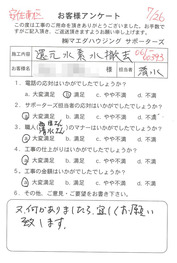 お客様アンケート 7/26
この度は工事のご用命を頂きありがとうございました。お手数で
すがご記入頂き、ご返送頂きますようよろしくお願い申し上げます。
㈱マエダハウジング サポーターズ
施工内容 還元水素水撤去
担当者 清水
1. 電話の応対はいかがでしたでしょうか。
a. 大変満足 b. 満足 c. やや不満 d. 不満
2. サポーターズ担当者の応対はいかがでしたでしょうか。
a. 大変満足 b. 満足 c. やや不満 d. 不満
3. 職人( )のマナーはいかがでしたでしょうか。
a. 大変満足 b. 満足 c. やや不満 d. 不満
4. 工事の仕上がりはいかがでしたでしょうか。
a. 大変満足 b. 満足 c. やや不満 d. 不満
5. 工事の金額はいかがでしたでしょうか。
a. 大変満足 b. 満足 c. やや不満 d. 不満
6. その他、ご意見・ご要望をお書き下さい。
又、何かありましたら、宜しくお願い
致します。